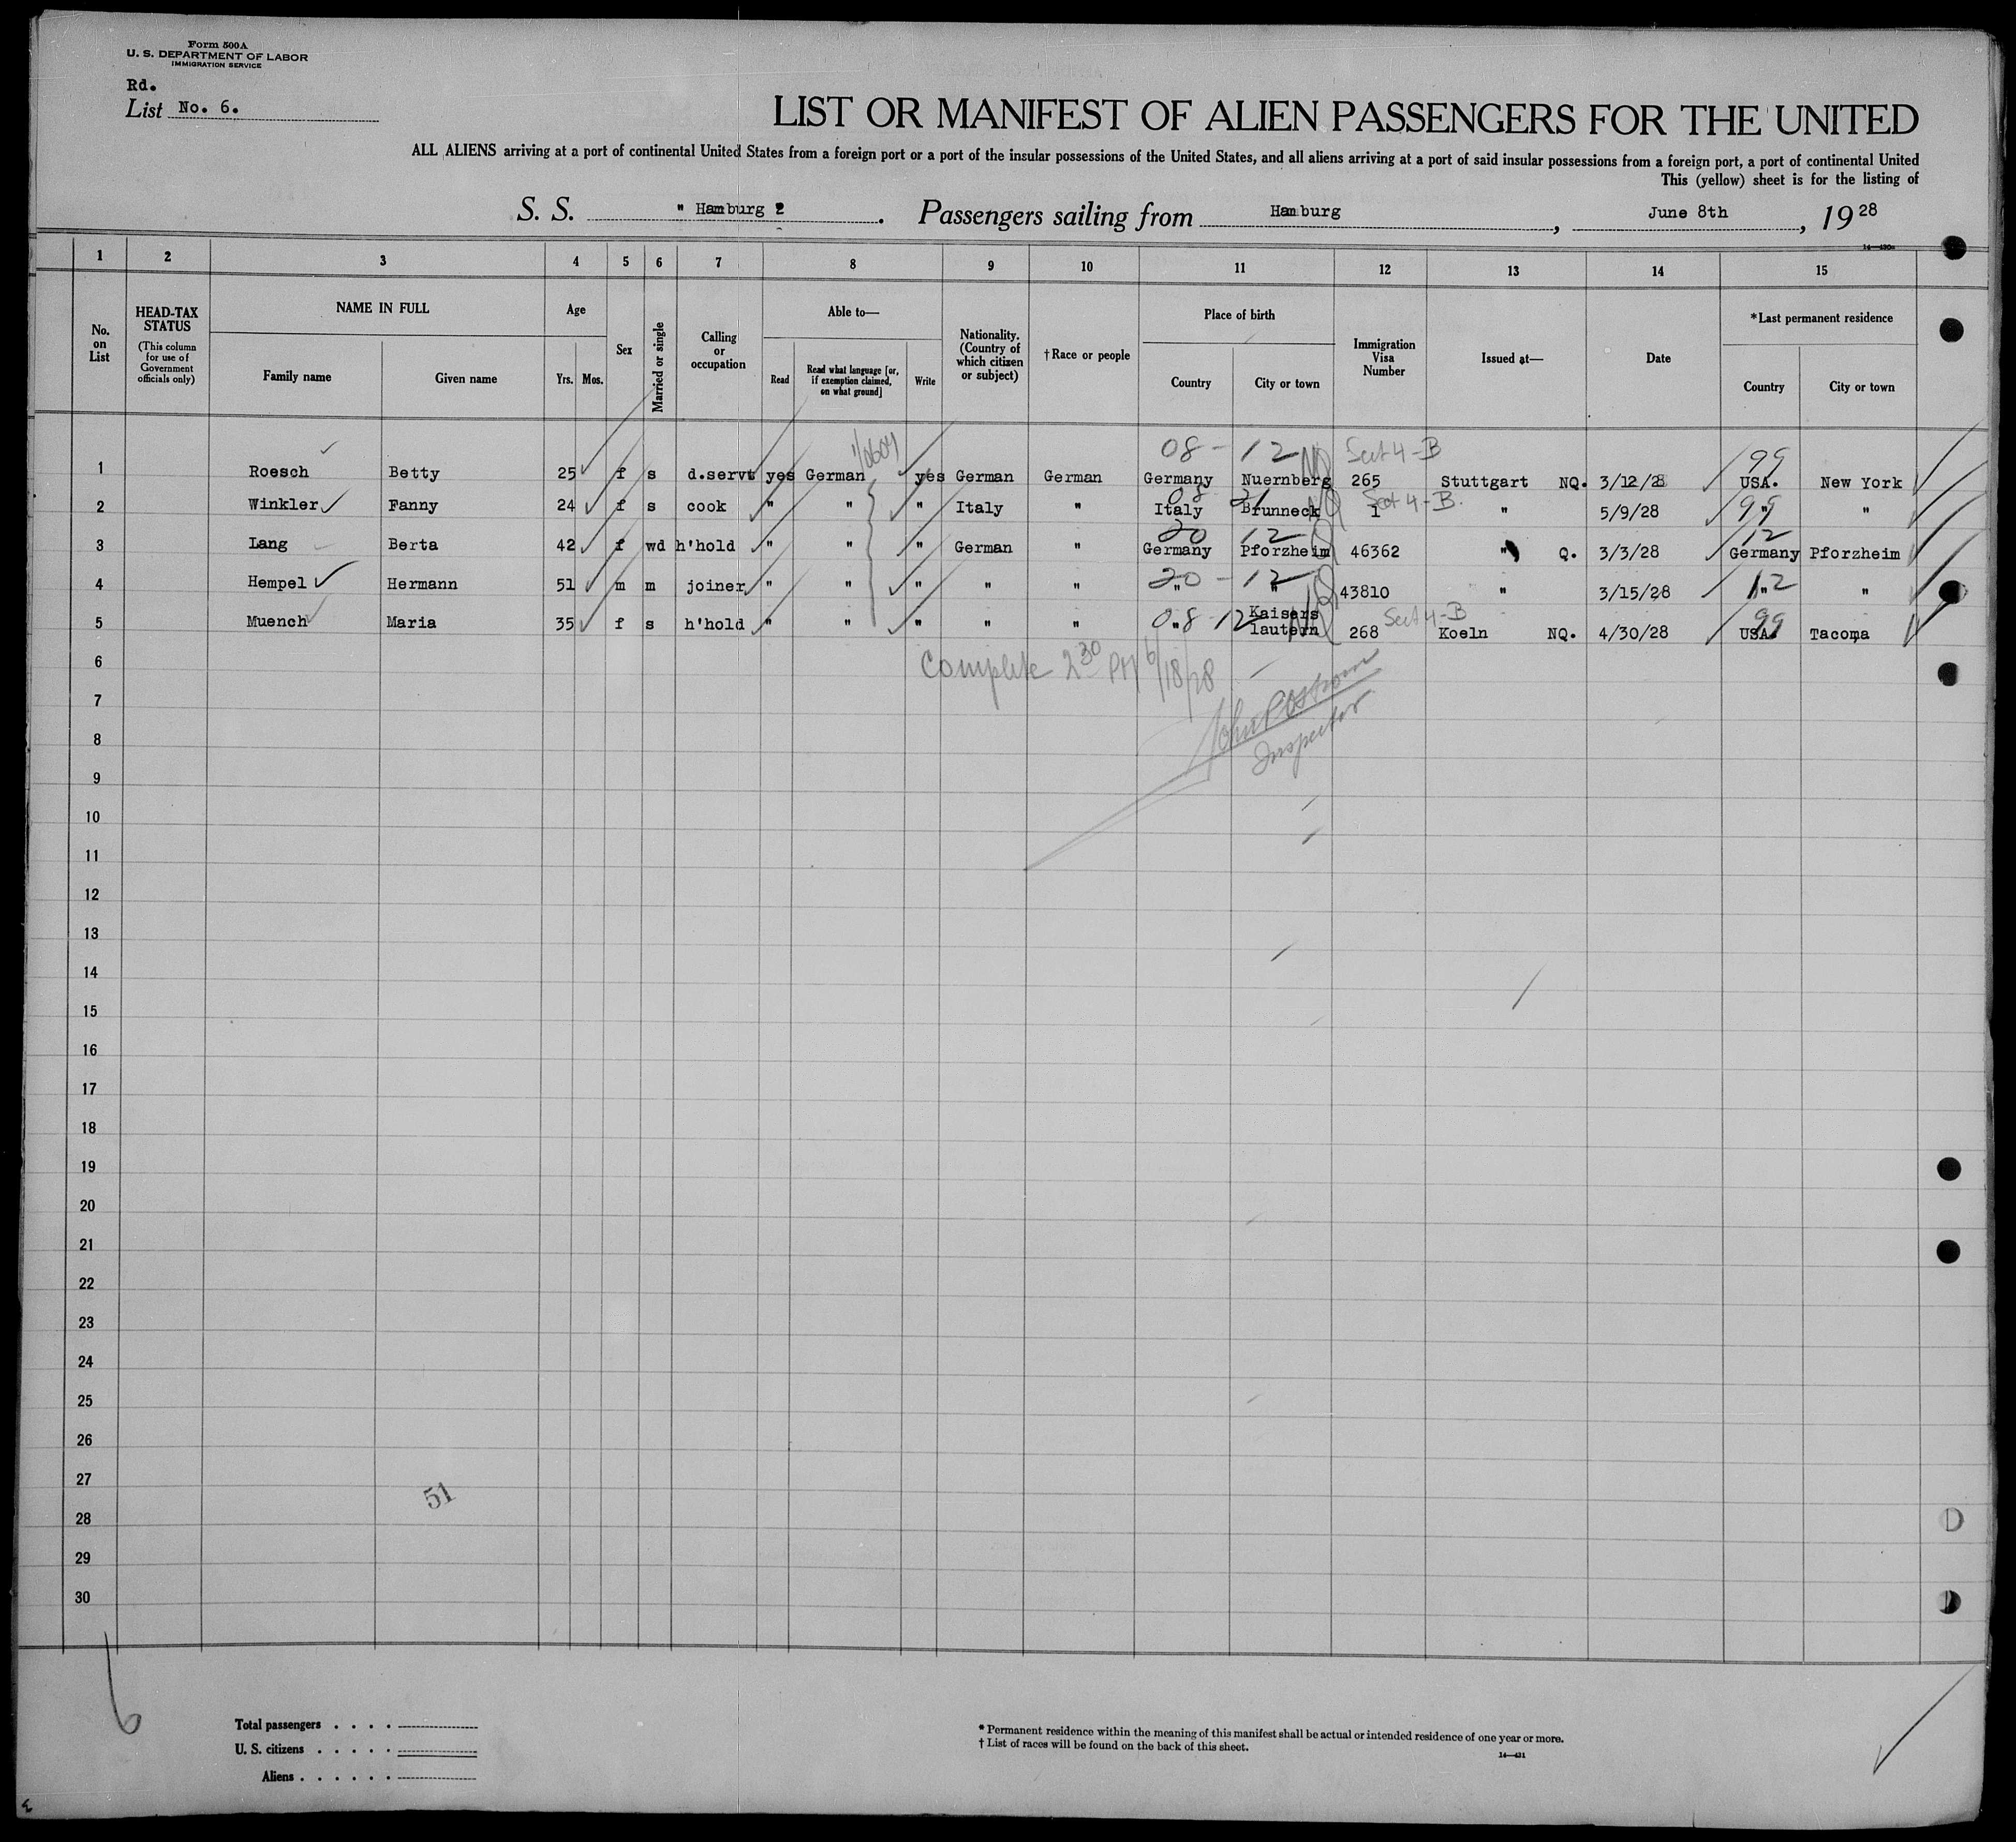 Form 500A
U. S. DEPARTMENT OF LABOR
IMMIGRATION SERVICE
Rd.
List No. 6.
LIST OR MANIFEST OF ALIEN PASSENGERS FOR THE UNITED
ALL ALIENS arriving at a port of continental United States from a foreign port or a port of the insular possessions of the United States, and all aliens arriving at a port of said insular possessions from a foreign port, a port of continental United
This (yellow) sheet is for the listing of
S. S. " Hamburg 2 . Passengers sailing from Hamburg , June 8th , 19 28
1 2 3 4 5 6 7 8 9 10 11 12 13 14 15
No. on List
HEAD-TAX STATUS
(This column for use of Government officials only)
NAME IN FULL
Family name Given name
Age
Yrs. Mos.
Sex
Married or single
Calling or occupation
Able to—
Read
Read what language [or, if exemption claimed, on what ground]
Write
Nationality. (Country of which citizen or subject)
† Race or people
Place of birth
Country City or town
Immigration Visa Number
Issued at—
Date
*Last permanent residence
Country City or town
08 - 12 Sect 4-B 99
1 Roesch Betty 25 f s d.servt yes German yes German German Germany Nuernberg 265 Stuttgart NQ. 3/12/28 USA. New York
08 21 Sect 4-B. 99
2 Winkler Fanny 24 f s cook " " " Italy " Italy Brunneck 1 " 5/9/28 " "
20 12 12
3 Lang Berta 42 f wd h'hold " " " German " Germany Pforzheim 46362 " Q. 3/3/28 Germany Pforzheim
20 - 12 12
4 Hempel Hermann 51 m m joiner " " " " " " " 43810 " 3/15/28 " "
08-12 Sect 4-B 99
5 Muench Maria 35 f s h'hold " " " " " " Kaisers lautern 268 Koeln NQ. 4/30/28 USA. Tacoma
6 Complete 2 30 PM 6/18/28
7 John P Ostrom
8 Inspector
9
10
11
12
13
14
15
16
17
18
19
20
21
22
23
24
25
26
27
51
28
29
30
6
Total passengers . . . .
U. S. citizens . . . . .
Aliens . . . . . .
* Permanent residence within the meaning of this manifest shall be actual or intended residence of one year or more.
† List of races will be found on the back of this sheet.
14—431